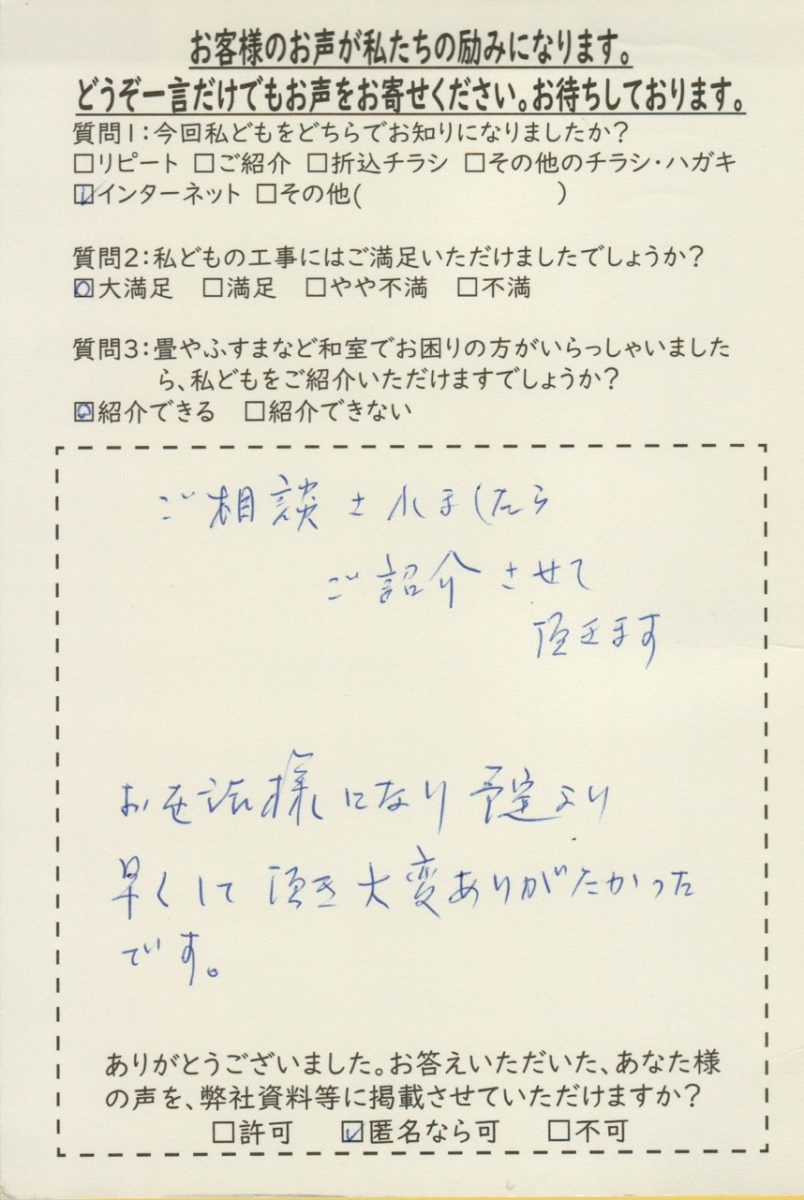 お客様のお声が私たちの励みになります。
どうぞ一言だけでもお声をお寄せください。お待ちしております。
質問1:今回私どもをどちらでお知りになりましたか?
□リピート □ご紹介 □折込チラシ □その他のチラシ・ハガキ
☑インターネット □その他( )
質問2:私どもの工事にはご満足いただけましたでしょうか?
☑大満足 □満足 □やや不満 □不満
質問3:畳やふすまなど和室でお困りの方がいらっしゃいました
ら、私どもをご紹介いただけますでしょうか?
☑紹介できる □紹介できない
ご相談されましたら
ご紹介させて
頂きます
お世話様になり予定より
早くして頂き大変ありがたかった
です。
ありがとうございました。お答えいただいた、あなた様
の声を、弊社資料等に掲載させていただけますか?
□許可 ☑匿名なら可 □不可